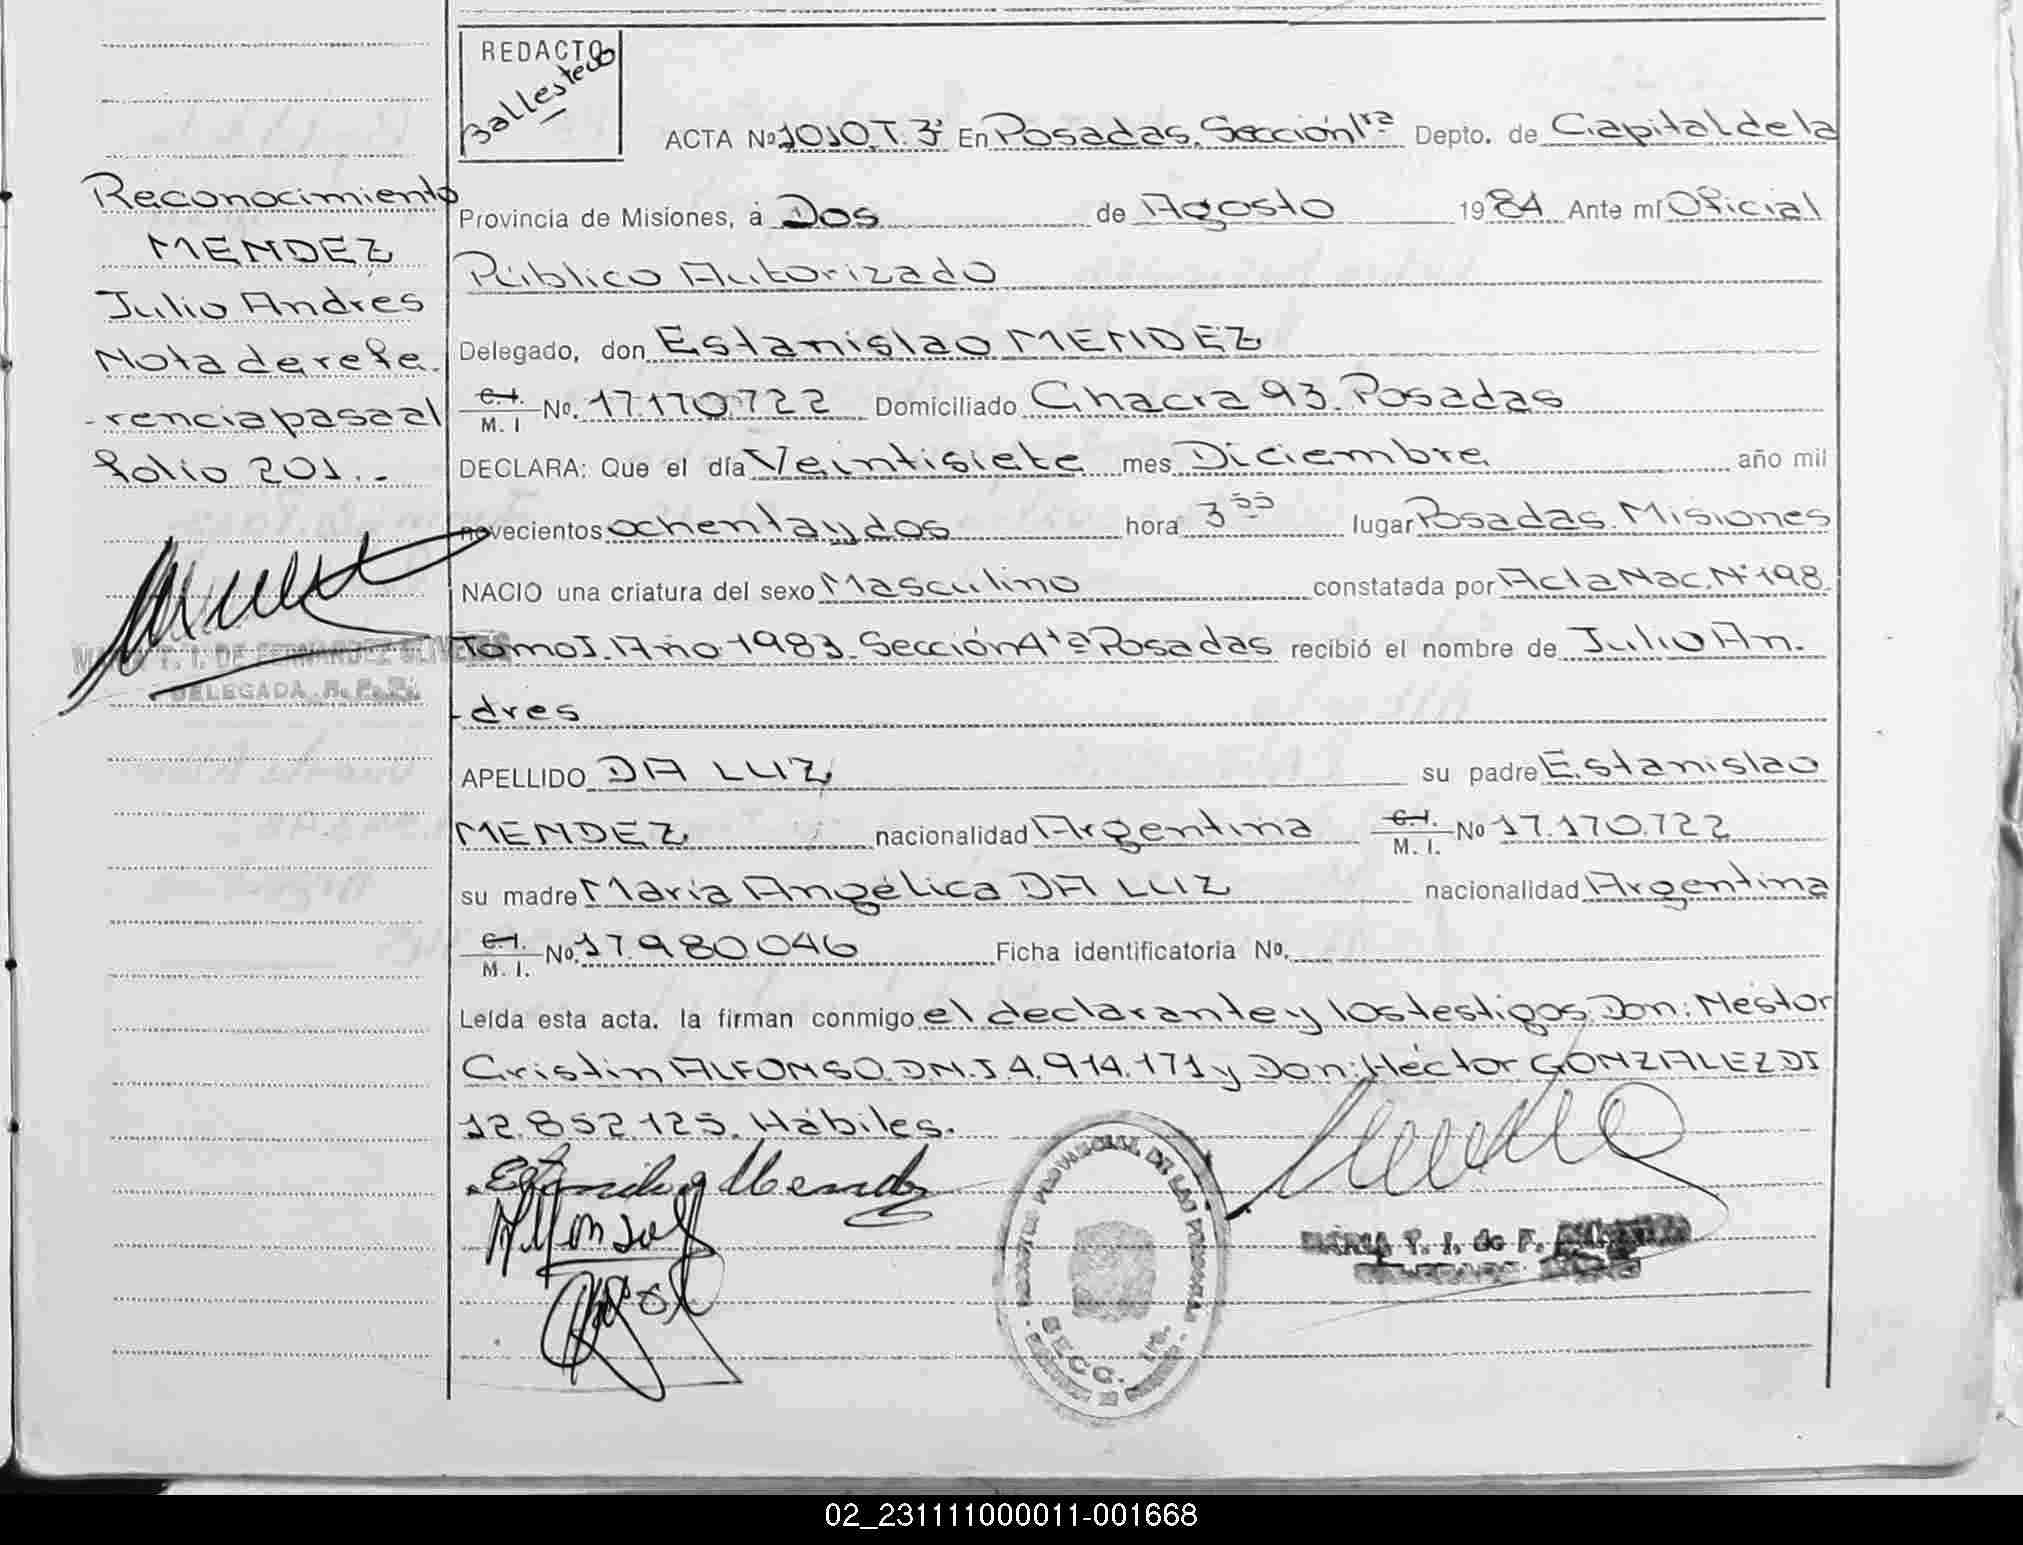 REDACTO
Ballestero
ACTA Nº 1010. T. 3º En Posadas. Sección 1ra Depto. de Capital de la
Reconocimiento
MENDEZ
Julio Andres
Nota de refe.
-rencia pasa al
folio 201.-
MARIA T. I. DE FERNANDEZ OLIVERES
DELEGADA R. P. P.
Provincia de Misiones, á Dos de Agosto 1984 Ante mí Oficial
Público Autorizado
Delegado, don Estanislao MENDEZ
C.I. M. I No. 17.170.722 Domiciliado Chacra 93. Posadas
DECLARA: Que el día Veintisiete mes Diciembre año mil
novecientos ochenta y dos hora 3 55 lugar Posadas. Misiones
NACIO una criatura del sexo Masculino constatada por Acta Nac. Nº 198
Tomo I. Año 1983. Sección 4ta Posadas recibió el nombre de Julio An.
-dres
APELLIDO DA LUZ su padre Estanislao
MENDEZ nacionalidad Argentina C.I. M. I. No 17.170.722
su madre María Angélica DA LUZ nacionalidad Argentina
C.I. M. I. No. 17.980046 Ficha identificatoria No.
Leída esta acta. la firman conmigo el declarante y los testigos: Don: Nestor
Cristin ALFONSO. D.N.I 4.914.171 y Don: Héctor GONZALEZ DI
12.852.125. Hábiles.
Estanislao Mendez
Alfonso
REGISTRO PROVINCIAL DE LAS PERSONAS
SECC. 1ra.
MARIA T. I. de F.
02_231111000011-001668